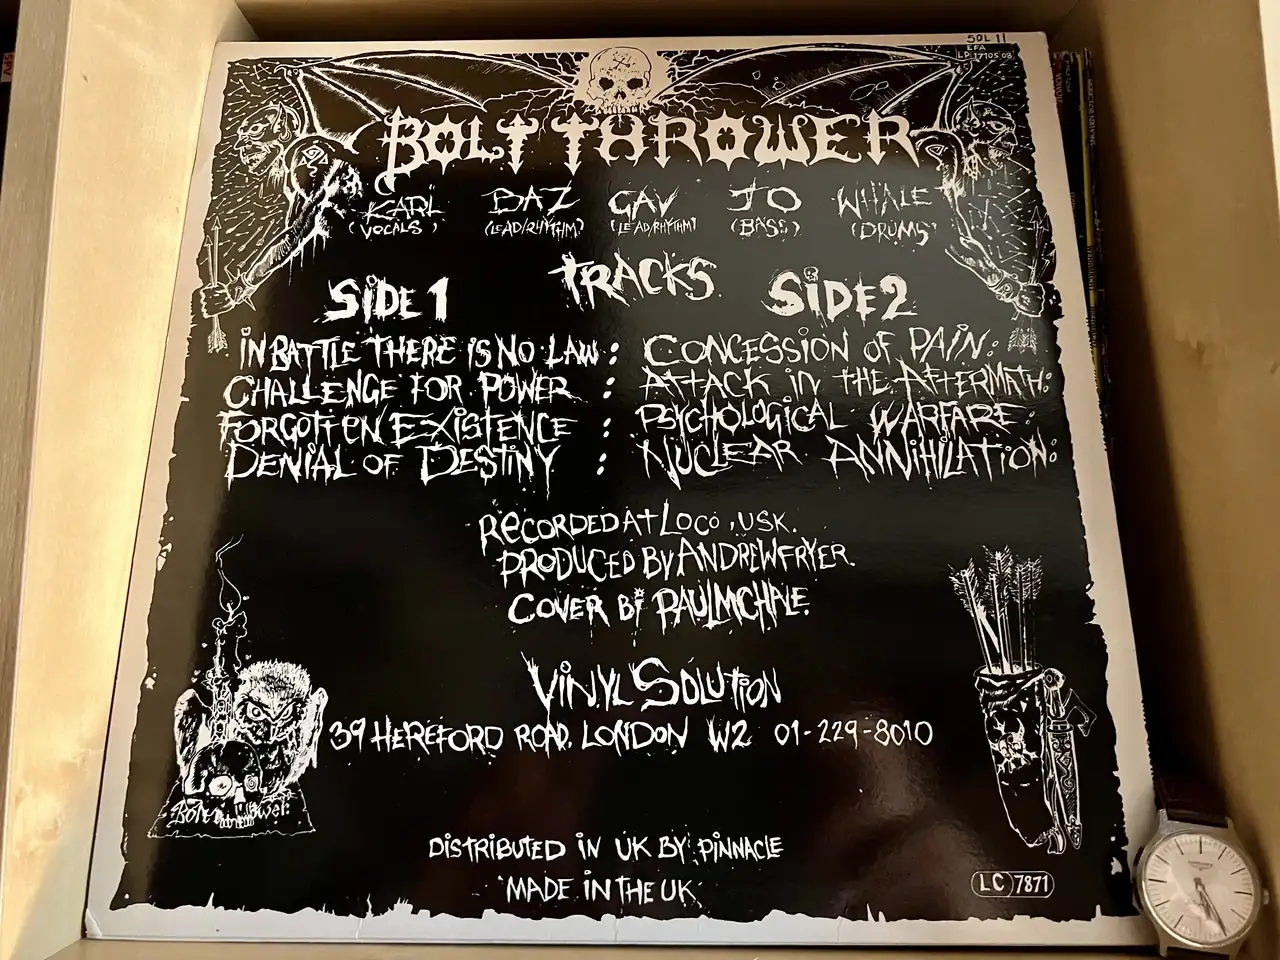 SOL 11
EFA
LP 17105 08
BOLT THROWER
KARL BAZ GAV JO WHALE
(VOCALS) (LEAD/RHYTHM) (LEAD/RHYTHM) (BASS) (DRUMS)
TRACKS
SIDE 1 SIDE 2
IN BATTLE THERE IS NO LAW : CONCESSION OF PAIN:
CHALLENGE FOR POWER : ATTACK IN THE AFTERMATH:
FORGOTTEN EXISTENCE : PSYCHOLOGICAL WARFARE:
DENIAL OF DESTINY : NUCLEAR ANNIHILATION:
RECORDED AT LOCO, USK.
PRODUCED BY ANDREW FRYER.
COVER BI PAUL MCHALE.
VINYL SOLUTION
39 HEREFORD ROAD, LONDON W2 01-229-8010
DISTRIBUTED IN UK BY PINNACLE
MADE IN THE UK
LC 7871